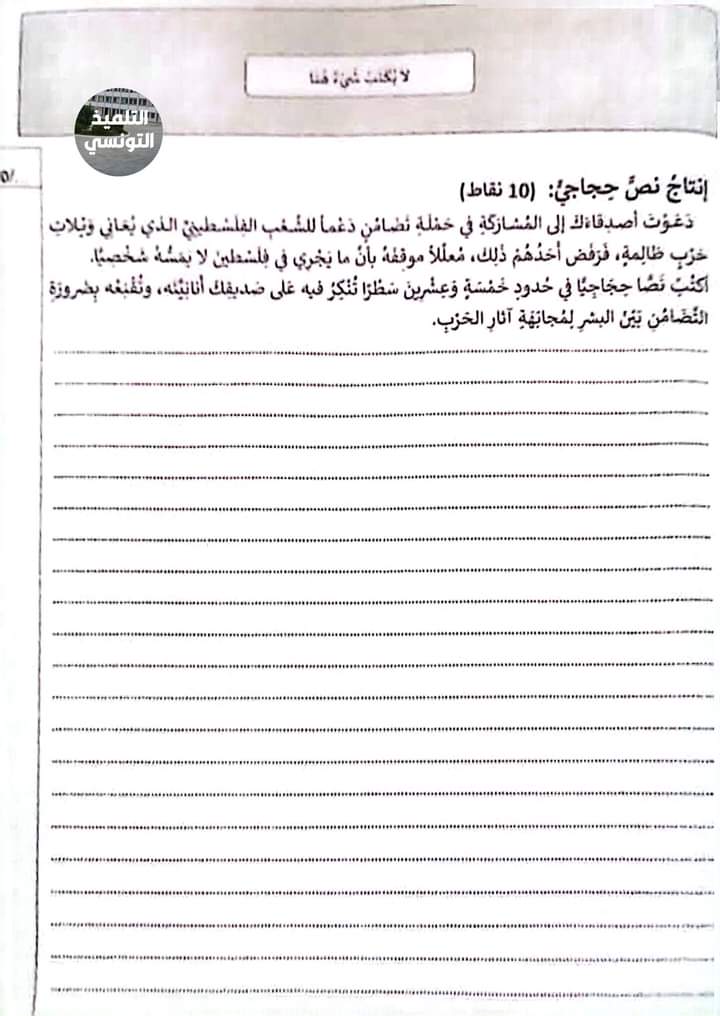 لَا يُكْتَبُ شَيْءٌ هُنَا
التلميذ
التونسي
إنتاجُ نصٍّ حِجاجيٍّ: (10 نقاط)
دَعَوْتَ أصدِقاءَكَ إلى المُشارَكَةِ في حَمْلَةِ تَضَامُنٍ دَعْماً للشَّعْبِ الفِلَسْطينِيِّ الذي يُعَانِي وَيْلاتِ
حَرْبٍ ظَالِمةٍ، فَرَفَضَ أحَدُهُمْ ذَلِكَ، مُعلّلاً موقِفَهُ بأنّ ما يَجْرِي في فِلَسْطين لا يَمَسُّهُ شَخْصِيًّا.
اُكتُبْ نَصًّا حِجَاجِيًّا في حُدودِ خَمْسَةٍ وَعِشْرينَ سَطْرًا تُنْكِرُ فيه عَلى صَديقِكَ أنانِيَّتَه، وتُقْنِعُه بِضَرورَةِ
التَّضَامُنِ بَيْنَ البشرِ لِمُجابَهَةِ آثارِ الحَرْبِ.